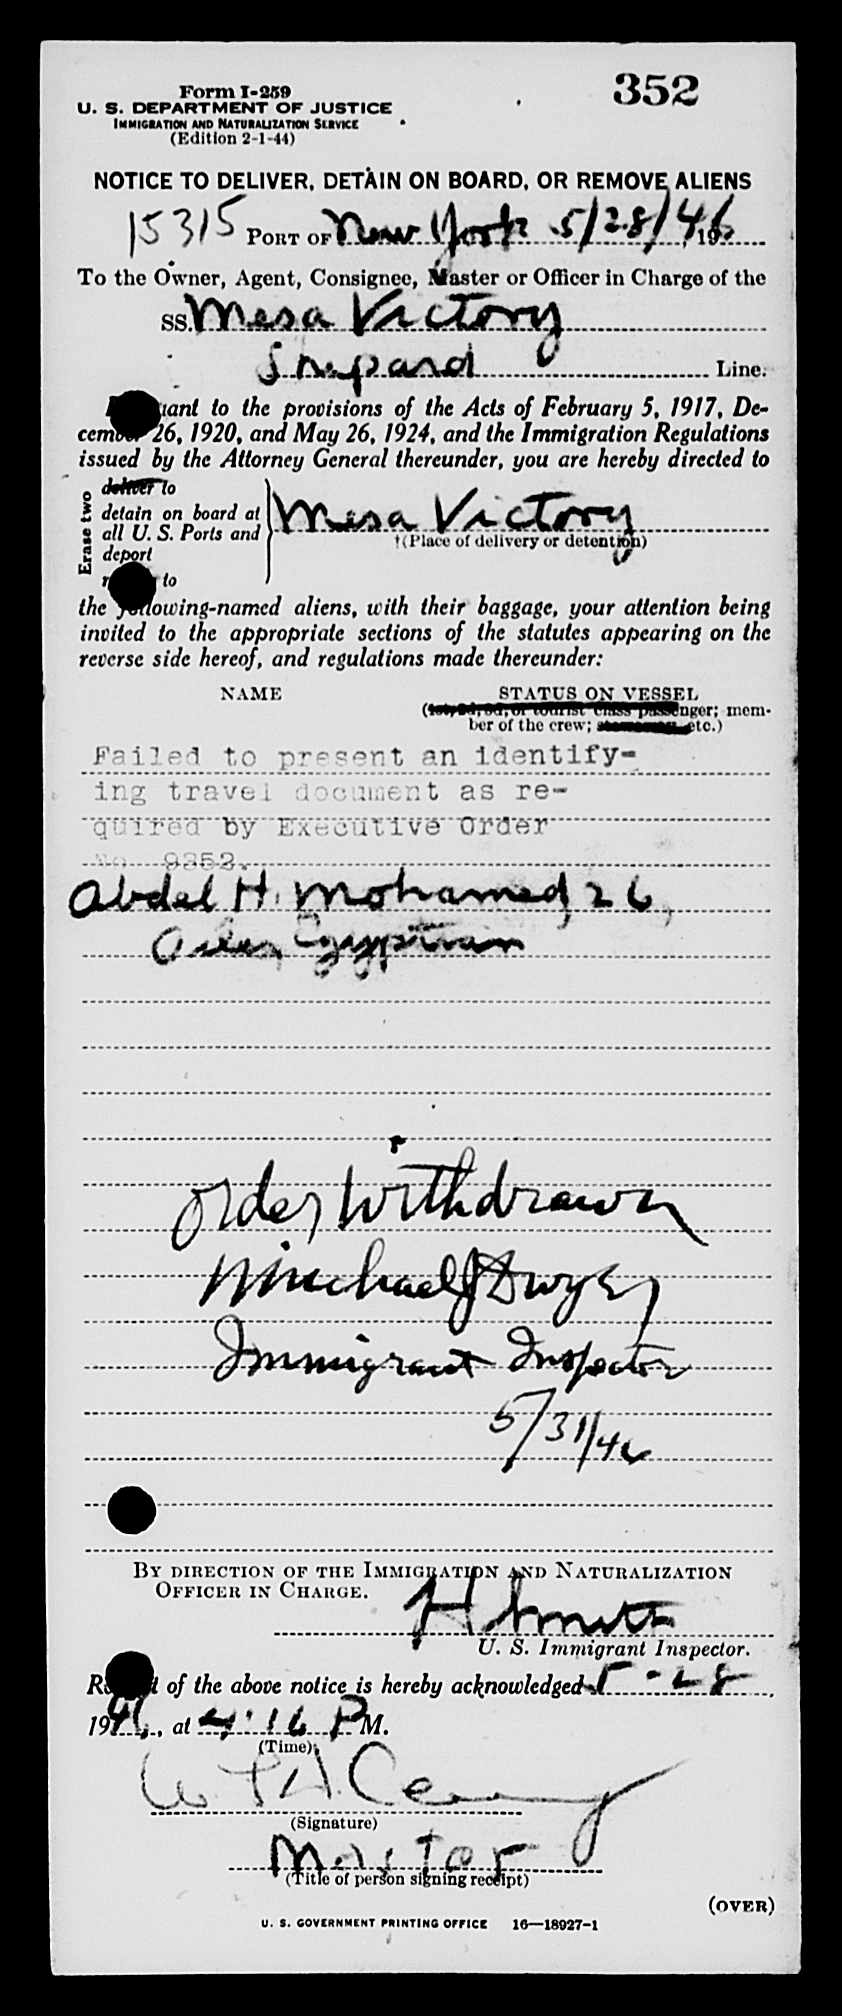 352
Form I-259
U. S. DEPARTMENT OF JUSTICE
IMMIGRATION AND NATURALIZATION SERVICE
(Edition 2-1-44)
NOTICE TO DELIVER, DETAIN ON BOARD, OR REMOVE ALIENS
15315 PORT OF New York 5/28/46, 19
To the Owner, Agent, Consignee, Master or Officer in Charge of the
SS. Mesa Victory
Shepard Line.
to the provisions of the Acts of February 5, 1917, De-
cember 26, 1920, and May 26, 1924, and the Immigration Regulations
issued by the Attorney General thereunder, you are hereby directed to
Erase two
deliver to
detain on board at
all U. S. Ports and
deport
to
Mesa Victory
†(Place of delivery or detention)
the following-named aliens, with their baggage, your attention being
invited to the appropriate sections of the statutes appearing on the
reverse side hereof, and regulations made thereunder:
NAME STATUS ON VESSEL
(1st, 2d, 3d, or tourist class passenger; mem-
ber of the crew; etc.)
Failed to present an identify-
ing travel document as re-
quired by Executive Order
No. 9352.
Abdel H. Mohamed, 26,
Oiler, Egyptian
Order Withdrawn
Michael J Dwyer
Immigrant Inspector
5/31/46
BY DIRECTION OF THE IMMIGRATION AND NATURALIZATION
OFFICER IN CHARGE.
H Smith
U. S. Immigrant Inspector.
of the above notice is hereby acknowledged 5-28,
1946, at 4:16 PM.
(Time)
(Signature)
Master
(Title of person signing receipt)
(OVER)
U. S. GOVERNMENT PRINTING OFFICE 16—18927-1